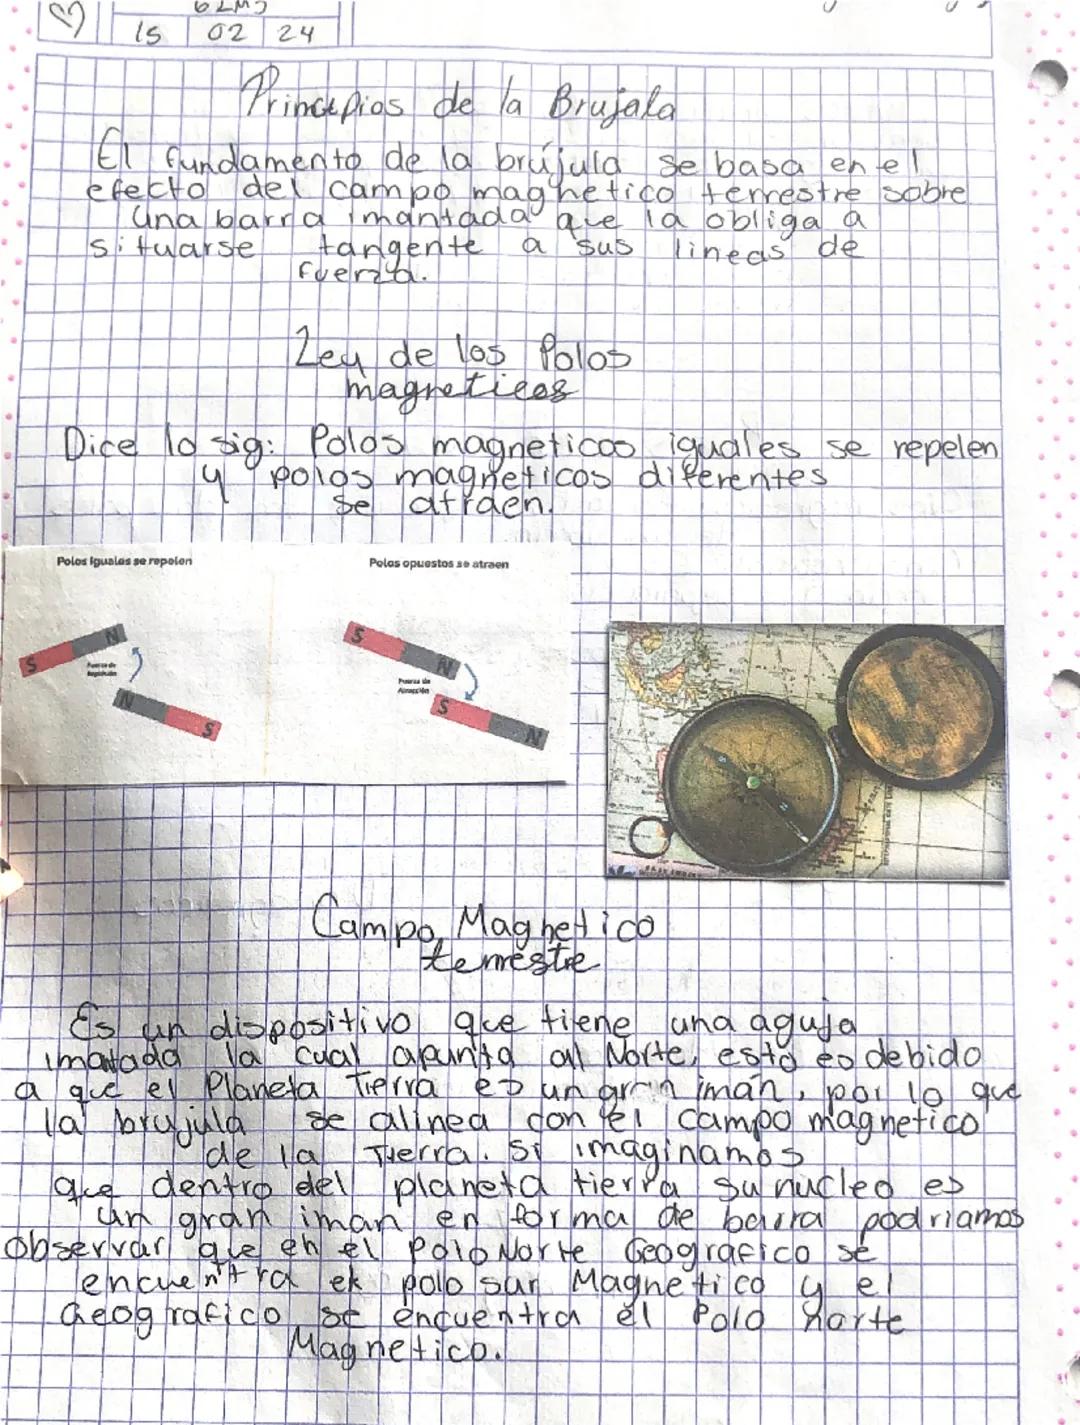 15 02 24
Principios de la Brujala
El fundamento de la brújula se basa en el
efecto del campo magnetico terrestre sobre
una barra imantada que la obliga a
situarse tangente a sus lineas de
fuerza.
Ley de los Polos
magneticos
Dice lo sig: Polos magneticos iguales se repelen
y polos magneticos diferentes
se atraen.
Polos Iguales se repelen
Polos opuestos se atraen
S N
Fuerza de
Repulsión
N S
S N
Fuerza de
Atracción
S N
Campo Magnetico
terrestre
Es un dispositivo que tiene una aguja
imatada la cual apunta al Norte, esto es debido
a que el Planeta Tierra es un gran imán, por lo que
la brujula se alinea con el campo magnetico
de la Tierra. Si imaginamos
que dentro del planeta tierra su nucleo es
un gran iman en forma de barra podriamos
observar que en el polo Norte Geografico se
encuentra ek polo sur Magnetico y el
Geografico se encuentra el Polo norte
Magnetico.